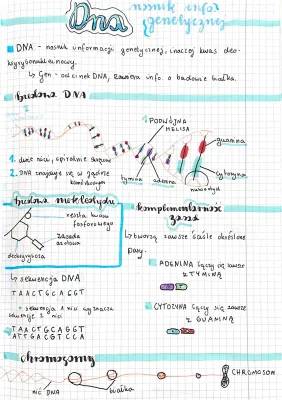 Dna
nośnik infor
genetycznej
DNA - nośnik informacji genetycznej, inaczej kwas deo-
ksyrybonukleinowy.
↳ Gen - odcinek DNA, zawiera info. o budowie białka.
Budowa DNA
PODWÓJNA
HELISA
guanina
1. dwie nici, spiralnie skręcone
2. DNA znajduje się w jądrze
komórkowym
tymina
adenina
cytozyna
nukleotyd
Budowa nukleotydu
reszta kwasu
fosforowego
zasada
azotowa
deoksyryboza
komplementarność
zasad
↳ tworzą zawsze ściśle określone
pary.
ADENINA łączy się zawsze
z TYMINĄ
CYTOZYNA łączy się zawsze
z GUANINĄ
↳ sekwencja DNA
TAACTGCAGGT
↳ sekwencja 1 nici wyznacza
sekwencję 2 nici
TAACTGCAGGT
ATTGACGTCCA
Chromosomy
CHROMOSOM
nić DNA
białka